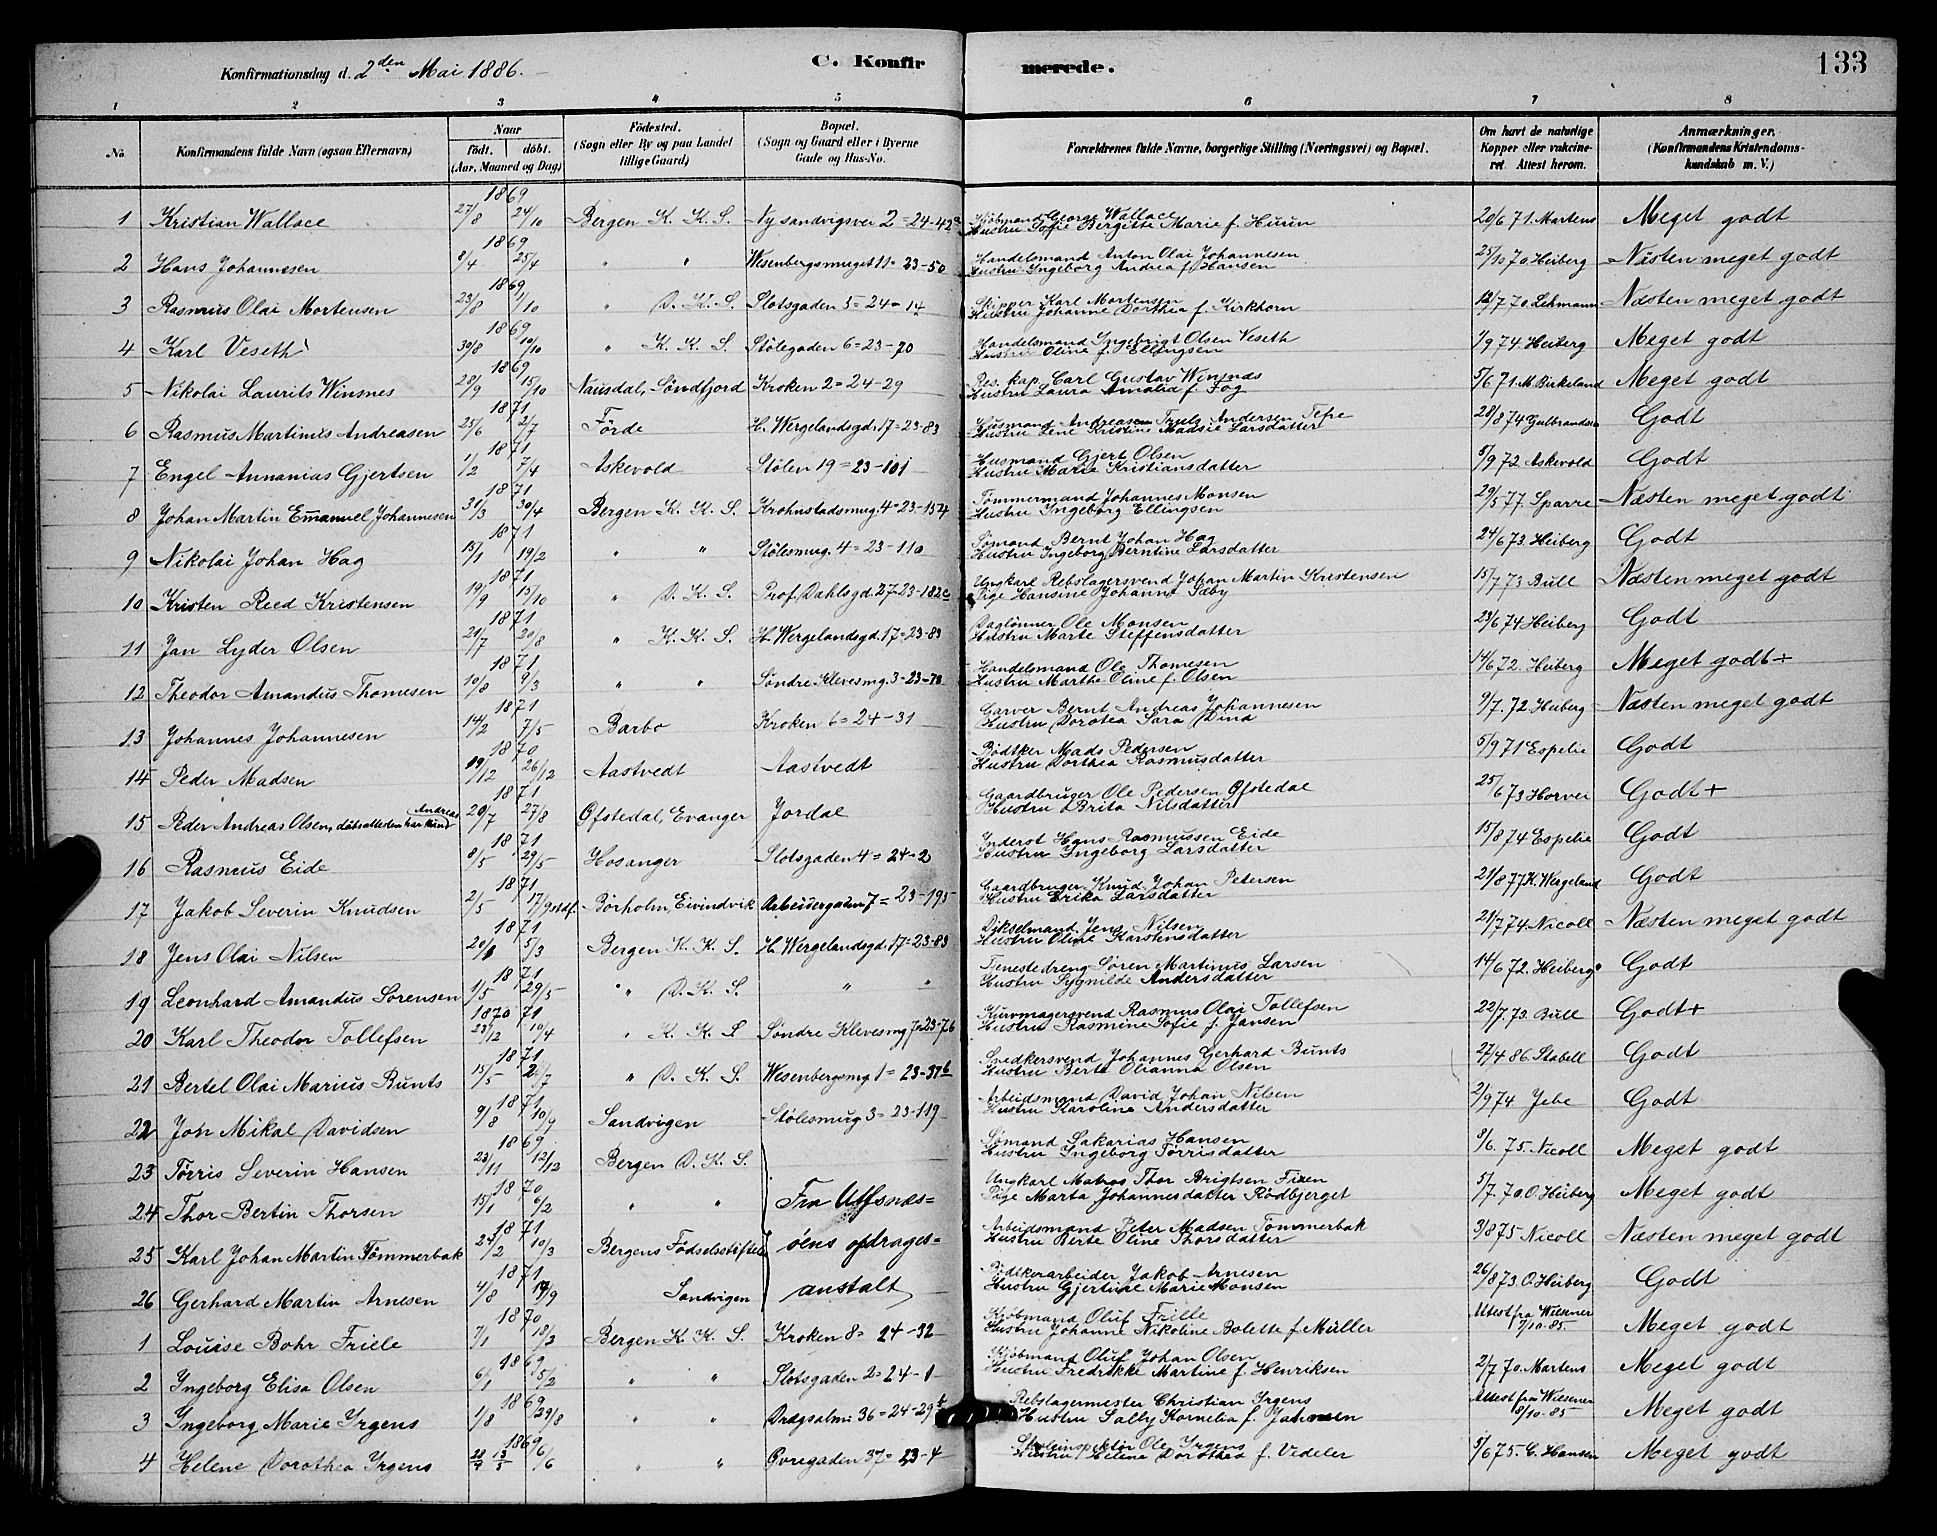 Konfirmationsdag d. 2den Mai 1886.
C. Konfirmerede.
133
1 2 3 4 5 6 7 8
No. Konfirmandens fulde Navn (ogsaa Efternavn) Naar født. døbt. (Aar, Maaned og Dag) Fødested. (Sogn eller By og paa Landet tillige Gaard) Bopæl. (Sogn og Gaard eller i Byerne Gade og Hus-No. Forældrenes fulde Navne, borgerlige Stilling (Næringsvei) og Bopæl. Om havt de naturlige Kopper eller vakcineret. Attest herom. Anmærkninger. (Konfirmandens Kristendomskundskab m. V.)
1 Kristian Wallace 1869 27/8 24/10 Bergen K. K. S. Ny sandvigsvei 2=24-42 Kjøbmand George Wallace Hustru Sofie Bergitte Marie f. Husun 20/6 71. Martens Meget godt
2 Hans Johannesen 1869 8/4 25/4 " " Wesenbergsmuget 11=23-50 Handelsmand Anton Olai Johannesen Hustru Ingeborg Andrea f. Hansen 25/10 70 Heiberg Næsten meget godt
3 Rasmus Olai Mortensen 1869 23/8 1/10 " D. K. S. Slotsgaden 5=24=14 Skipper Karl Mortensen Hustru Johanne Dorthea f. Kirkhorn 12/7 70. Lehmann Næsten meget godt
4 Karl Veseth 1869 30/8 10/10 " K. K. S. Stølegaden 6=23-70 Handelsmand Ingebrigt Olsen Veseth Hustru Oline f. Ellingsen 1/9 74. Heiberg Meget godt
5 Nikolai Laurits Winsnes 1869 28/9 15/10 Nausdal, Søndfjord Kroken 2=24-29 Res. kap. Carl Gustav Winsnæs Hustru Laura Amalia f. Fog 5/6 71. M. Birkeland Meget godt
6 Rasmus Martinus Andreasen 1871 25/6 2/7 Förde H. Wergelandsgd. 17=23-83 Husmand Andreasen Truls Andersen Tefre Hustru Lene Kristine Madsie Larsdatter 28/8 74 Gulbrandsen Godt
7 Engel Annanias Gjertsen 1871 1/2 7/4 Askevold Stølen 19=23-101 Husmand Gjert Olsen Hustru Marie Kristiansdatter 5/9 72. Askevold Godt
8 Johan Martin Emanuel Johannesen 1871 31/3 30/4 Bergen K. K. S. Krohnstadsmug. 4=23-154 Tømmermand Johannes Monsen Hustru Ingeborg Ellingsen 29/5 77. Sparre Næsten meget godt
9 Nikolai Johan Hag 1871 15/1 19/2 " " Stølesmug. 4=23-110 Sømand Bernt Johan Hag Hustru Ingeborg Berntine Larsdatter 24/6 73. Heiberg Godt
10 Kristen Reed Kristensen 1871 19/9 15/10 " D. K. S. Prof. Dahlsgd. 27-23-182c Ungkarl Rebslagersvend Johan Martin Kristensen Pige Hansine Johanne Sæby 15/7 73 Bull Næsten meget godt
11 Jan Lyder Olsen 1871 21/7 20/8 " K. K. S. H. Wergelandsgd. 17=23-83 Daglønner Ole Monsen Hustru Marte Steffensdatter 23/6 74 Heiberg Godt
12 Theodor Amandus Thomesen 1871 10/8 9/3 " " Søndre Klevesmg. 3-23-78 Handelsmand Ole Thomesen Hustru Marthe Oline f. Olsen 14/6 72. Heiberg Meget godt ÷
13 Johannes Johannesen 1871 14/2 7/5 Barbo Kroken 6=24-31 Garver Bernt Andreas Johannesen Hustru Dorotea Sara Dina 9/7. 72. Heiberg Næsten meget godt
14 Peder Madsen 1870 19/12 26/12 Aastvedt Aastvedt Bødtker Mads Pedersen Hustru Dorthea Rasmusdatter 5/9 71 Espelie Godt
15 Peder Andreas Olsen, døbsattesten har kund Andreas 1871 20/7 27/8 Ofstedal, Evanger Jordal Gaardbruger Ole Pedersen Ofstedal Hustru Brita Nilsdatter 25/6 73 Horvei Godt+
16 Rasmus Eide 1871 8/5 29/5 Hosanger Slotsgaden 4=24-2 Inderst Hans Rasmussen Eide Hustru Ingeborg Larsdatter 15/8 74 Espelie Godt
17 Jakob Severin Knudsen 1871 2/5 17/9 stdf. Børholm, Eivindvik Arbeidergaden 7=23-195 Gaardbruger Knud Johan Petersen Hustru Erika Larsdatter 21/8 77 K. Wergeland Godt
18 Jens Olai Nilsen 1871 20/1 5/3 Bergen K. K. S. H. Wergelandsgd. 17=23-83 Dikselmand Jens Nilsen Hustru Oline Karstensdatter 21/7 74 Nicoll Næsten meget godt
19 Leonhard Amandus Sørensen 1871 1/5 29/5 " D. K. S. " " Tjenestedreng Søren Martinus Larsen Hustru Sygnilde Andersdatter 14/6 72. Heiberg Godt
20 Karl Theodor Tollefsen 1870 71 23/12 10/4 " K. K. S Søndre Klevesmg 7=23-76 Kurvmagersvend Rasmus Olai Tollefsen Hustru Rasmine Sofie f. Jansen 22/7. 73. Bull Godt+
21 Bertel Olai Marius Bunts 1871 15/5 2/7 " D. K. S. Wesenbergsmg 1=23-37b Snedkersvend Johannes Gerhard Bunts Hustru Berte Olianna Olsen 27/4 86. Stabell Godt
22 Jon Mikal Davidsen 1871 9/8 10/9 Sandvigen Stølesmug 3=23-119 Arbeidsmand David Johan Nilsen Hustru Karoline Andersdatter 2/9 74 Jebe Godt
23 Tørris Severin Hansen 1869 23/11 12/12 Bergen D. K. S. Sømand Sakarias Hansen Hustru Ingeborg Tørrisdatter 8/6. 75. Nicoll Meget godt
24 Thor Bertin Thorsen 1870 15/1 6/2 " " Fra Ulfsnæs= Ungkarl Matros Thor Brigtsen Fixen Pige Marta Johannesdatter Rødbjerget 5/7. 70. O. Heiberg Meget godt
25 Karl Johan Martin Tømmerbak 1871 25/2 10/3 Bergens Fødselsstiftel øens opdragel= Arbeidsmand Peter Madsen Tømmerbak Hustru Berte Oline Thorsdatter 3/8 75 Nicoll Næsten meget godt
26 Gerhard Martin Arnesen 1871 4/8 19/9 Sandvigen anstalt Bødtkerarbeider Jakob Arnesen Hustru Gjertine Marie Monsen 26/8 73. O. Heiberg Godt
1 Louise Bohr Friele 1870 7/1 18/2 Bergen K. K. S. Kroken 8=24-32 Kjøbmand Oluf Frille Hustru Johanne Nikoline Bolette f. Müller Attest fra Wiesener 7/10-85 Meget godt
2 Ingeborg Elisa Olsen 1869 6/1 15/2 " " Slotsgaden 2=24-1 Kjøbmand Oluf Johan Olsen Hustru Fredrikke Martine f. Henriksen 2/7 70. Martens Meget godt
3 Ingeborg Marie Irgens 1869 1/8 29/8 " " Drægsalm: 36=24-29b Rebslagermester Christian Irgens Hustru Sally Kornelia f. Jahnsen Attest fra Wiesener 8/10-85 Meget godt
4 Helene Dorothea Irgens 1869 6/6 " " Øvregaden 37=23-4 Skoleinspektør Ole Irgens Hustru Helene Dorothea f. Vedeler 5/6 75. C. Hansen Meget godt